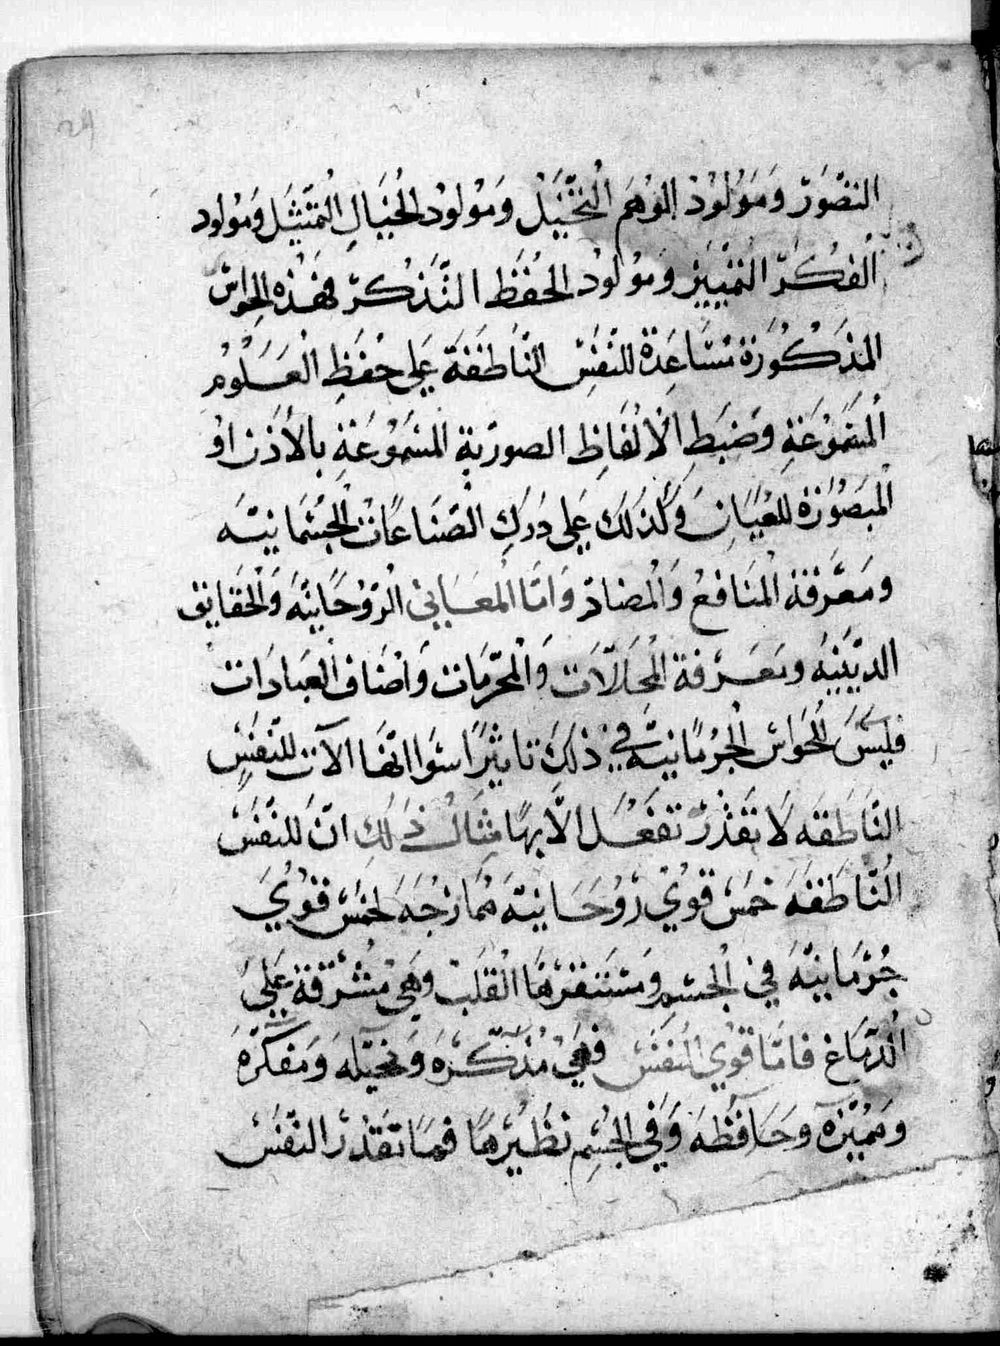 التصور ومولود الوهم التخييل ومولود الخيال التمثيل ومولود
الفكر التمييز ومولود الحفظ التذكر فهذه الحواس
المذكورة مساعدة للنفس الناطقة علي حفظ العلوم
المسموعة وضبط الالفاظ الصورية المسموعة بالاذن او
المبصورة للعيان وكذلك علي درك الصناعات الجسمانيه
ومعرفة المنافع والمضار واما المعاني الروحانيه والحقايق
الدينيه ومعرفة المحللات والمحرمات واصناف العبادات
فليس للحواس الجرمانيه في ذلك تاثيرا سوا انها الآت للنفس
الناطقه لا تقدر تفعل الا بها مثال ذلك ان للنفس
الناطقه خمس قوي روحانيه ممازجه لخمس قوي
جرمانيه في الجسم ومستقرها القلب وهي مشرقة علي
الدماغ فاما قوي النفس فهي مذكره ومخيله ومفكره
ومميزه وحافظه وفي الجسم نظيرها فما تقدر النفس